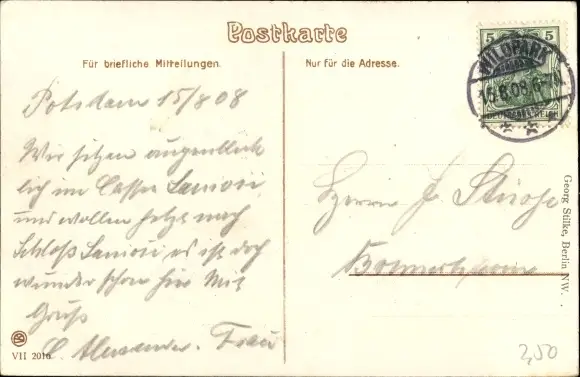 Postkarte
Für briefliche Mitteilungen.
Nur für die Adresse.
5 5
WILDPARK
15.8.08.6-7N.
DEUTSCHES REICH
Potsdam 15/8 08
Wir sitzen augenblick
lich im Caffee Sanssouci
und wollen jetzt nach
Schloß Sanssouci es ist doch
wunder schön hier Mit
Gruß
Alexander. Frau
Herrn J.
Georg Stilke, Berlin NW.
VII 2016
2,50